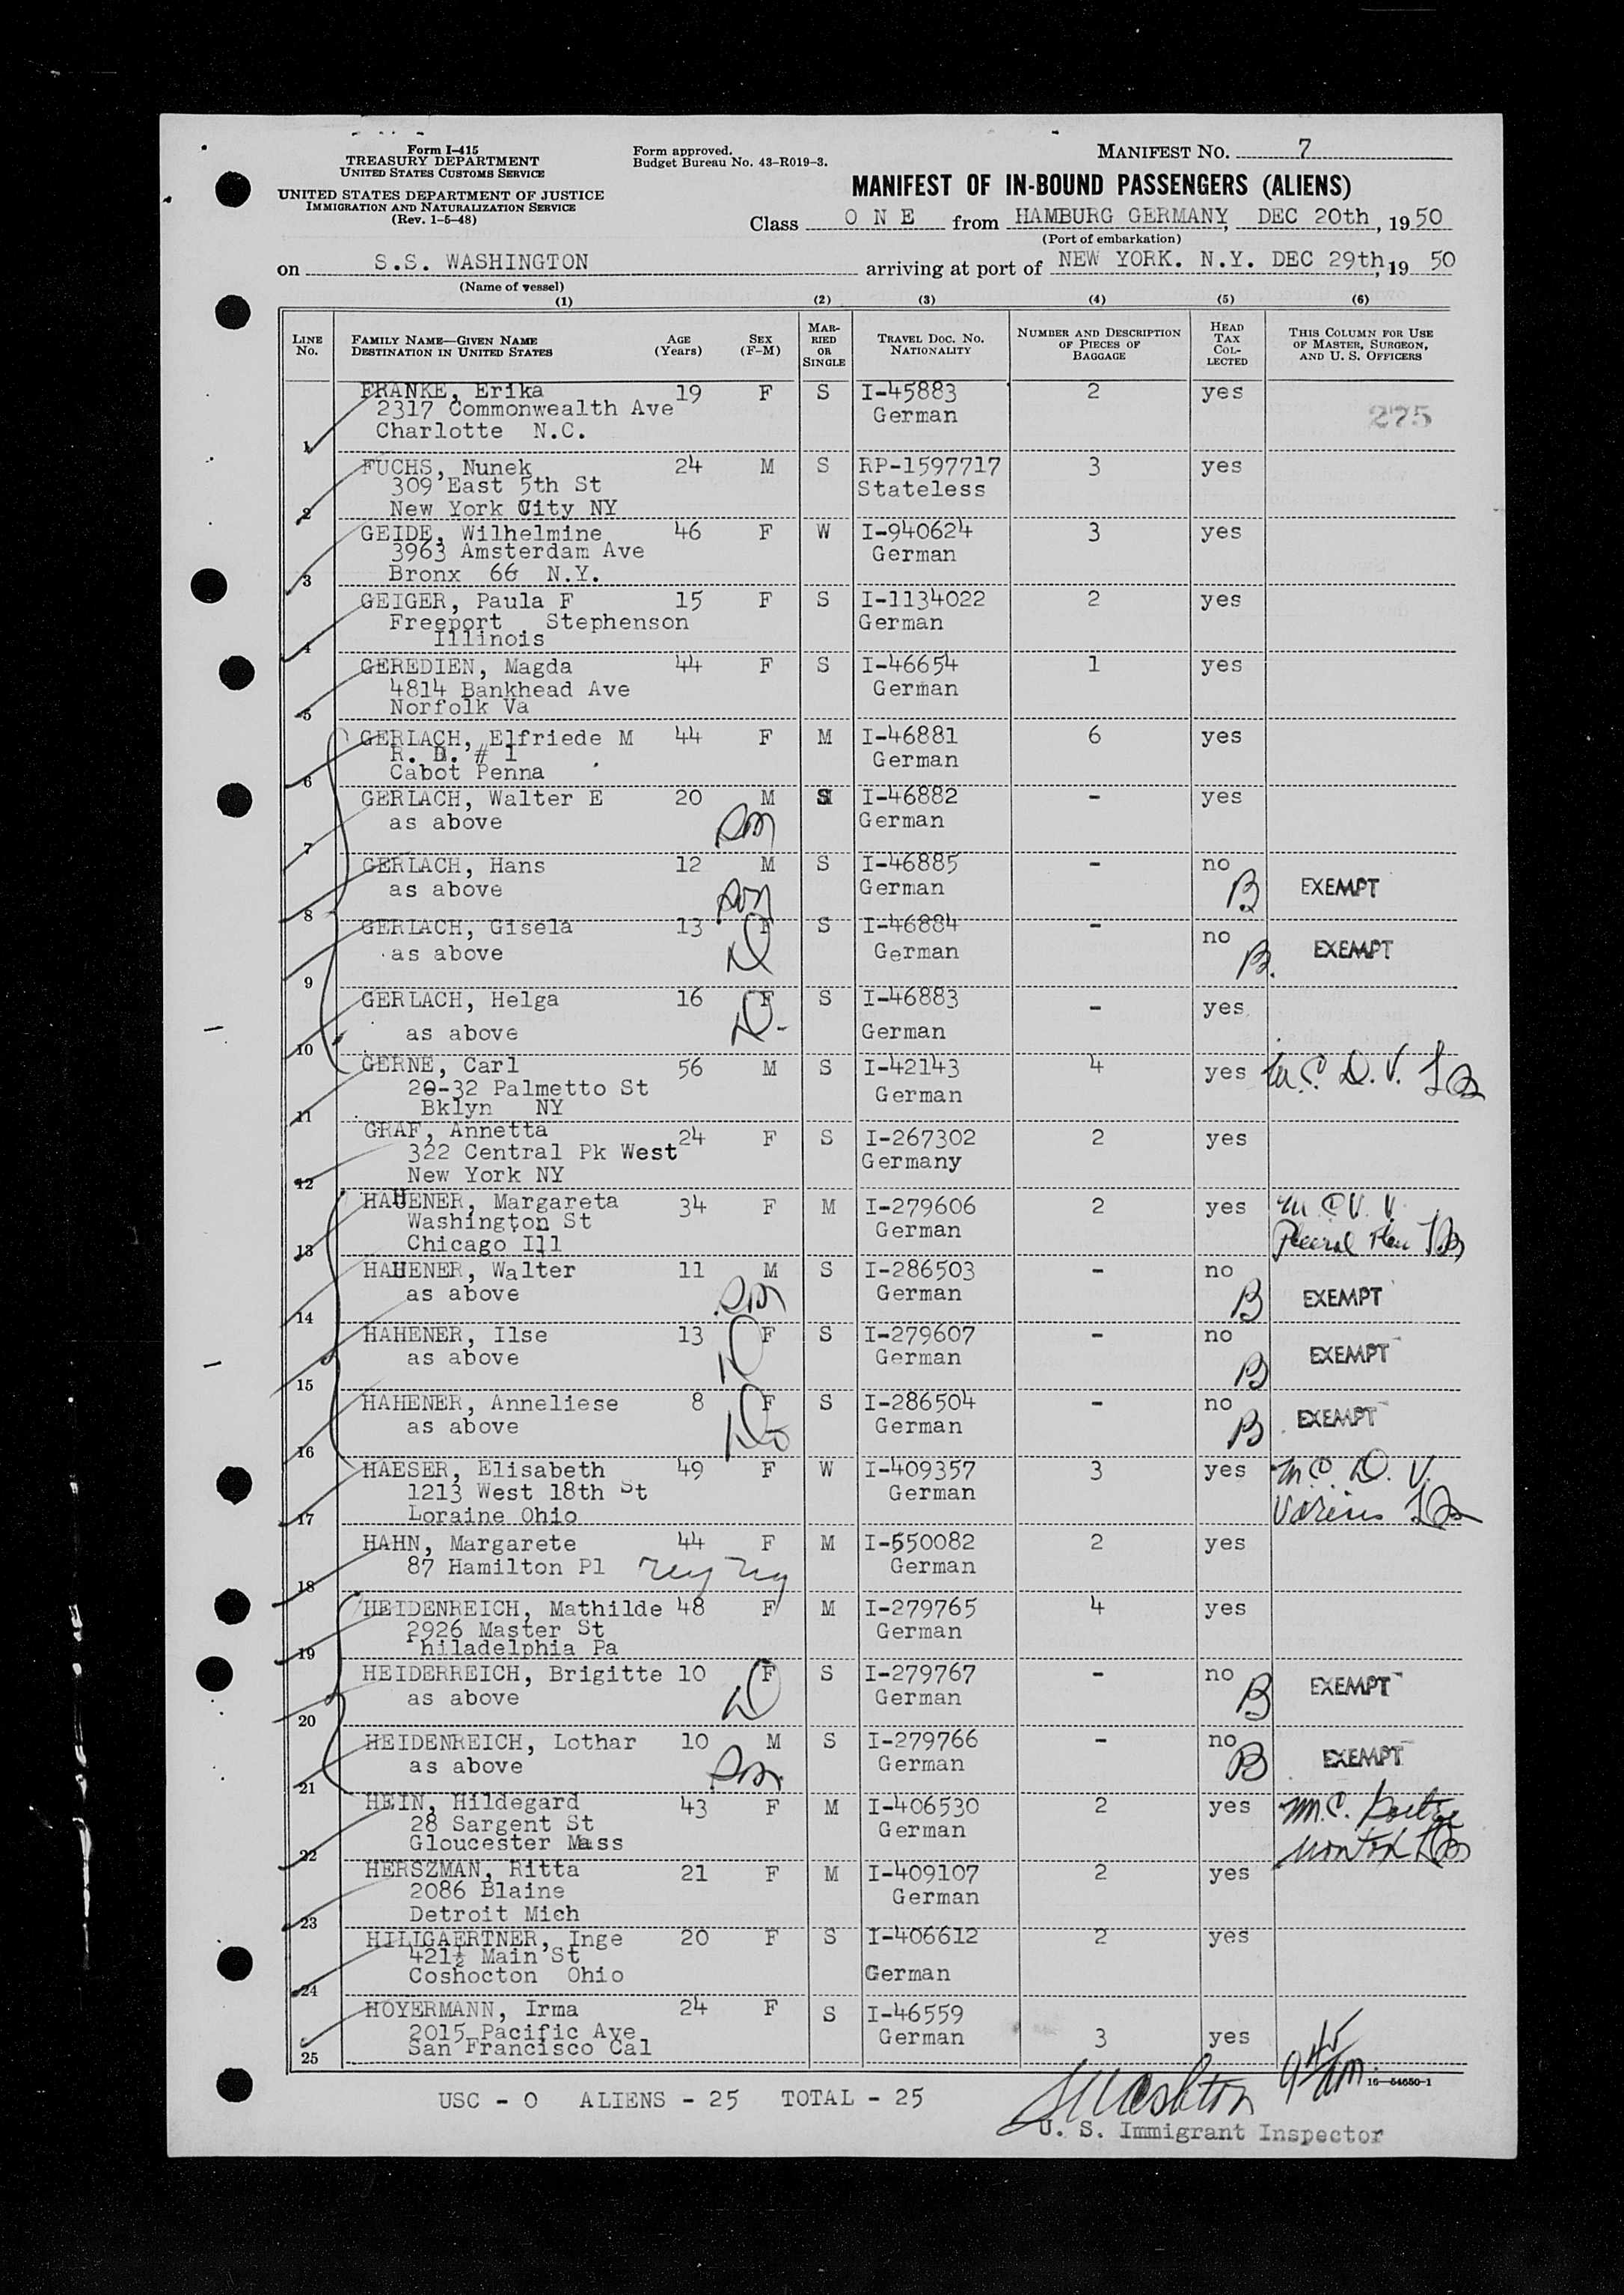 Form I-415
TREASURY DEPARTMENT
UNITED STATES CUSTOMS SERVICE
UNITED STATES DEPARTMENT OF JUSTICE
IMMIGRATION AND NATURALIZATION SERVICE
(Rev. 1-5-48)
Form approved.
Budget Bureau No. 43-R019-3.
MANIFEST NO. 7
MANIFEST OF IN-BOUND PASSENGERS (ALIENS)
Class O N E from HAMBURG GERMANY, DEC 20th, 1950
(Port of embarkation)
on S.S. WASHINGTON arriving at port of NEW YORK. N.Y. DEC 29th, 19 50
(Name of vessel)
(1) (2) (3) (4) (5) (6)
LINE NO. FAMILY NAME—GIVEN NAME DESTINATION IN UNITED STATES AGE (Years) SEX (F-M) MARRIED OR SINGLE TRAVEL DOC. NO. NATIONALITY NUMBER AND DESCRIPTION OF PIECES OF BAGGAGE HEAD TAX COLLECTED THIS COLUMN FOR USE OF MASTER, SURGEON, AND U. S. OFFICERS
FRANKE, Erika 19 F S I-45883 2 yes
2317 Commonwealth Ave German 275
1 Charlotte N.C.
FUCHS, Nunek 24 M S RP-1597717 3 yes
309 East 5th St Stateless
2 New York City NY
GEIDE, Wilhelmine 46 F W I-940624 3 yes
3963 Amsterdam Ave German
3 Bronx 66 N.Y.
GEIGER, Paula F 15 F S I-1134022 2 yes
Freeport Stephenson German
4 Illinois
GEREDIEN, Magda 44 F S I-46654 1 yes
4814 Bankhead Ave German
5 Norfolk Va
GERLACH, Elfriede M 44 F M I-46881 6 yes
R. D. # 1 German
6 Cabot Penna
GERLACH, Walter E 20 M S I-46882 - yes
as above son German
7
GERLACH, Hans 12 M S I-46885 - no
as above son German B EXEMPT
8
GERLACH, Gisela 13 F S I-46884 - no
as above D German B. EXEMPT
9
GERLACH, Helga 16 F S I-46883 - yes
as above D. German
10
GERNE, Carl 56 M S I-42143 4 yes M.C. D.V.
20-32 Palmetto St German
11 Bklyn NY
GRAF, Annetta 24 F S I-267302 2 yes
322 Central Pk West Germany
12 New York NY
HAUENER, Margareta 34 F M I-279606 2 yes
Washington St German
13 Chicago Ill
HAUENER, Walter 11 M S I-286503 - no
as above son German B EXEMPT
14
HAHENER, Ilse 13 F S I-279607 - no
as above D German B EXEMPT
15
HAHENER, Anneliese 8 F S I-286504 - no
as above Do German B EXEMPT
16
HAESER, Elisabeth 49 F W I-409357 3 yes M.C. D.V.
1213 West 18th St German
17 Loraine Ohio
HAHN, Margarete 44 F M I-550082 2 yes
87 Hamilton Pl Ny Ny German
18
HEIDENREICH, Mathilde 48 F M I-279765 4 yes
2926 Master St German
19 Philadelphia Pa
HEIDERREICH, Brigitte 10 F S I-279767 - no
as above D German B EXEMPT
20
HEIDENREICH, Lothar 10 M S I-279766 - no
as above Son German B EXEMPT
21
HEIN, Hildegard 43 F M I-406530 2 yes M.C.
28 Sargent St German
22 Gloucester Mass
HERSZMAN, Ritta 21 F M I-409107 2 yes
2086 Blaine German
23 Detroit Mich
HILIGAERTNER, Inge 20 F S I-406612 2 yes
421½ Main St German
24 Coshocton Ohio
HOYERMANN, Irma 24 F S I-46559
2015 Pacific Ave German 3 yes
25 San Francisco Cal
9 45 am.
16—54650-1
USC - 0 ALIENS - 25 TOTAL - 25
U. S. Immigrant Inspector